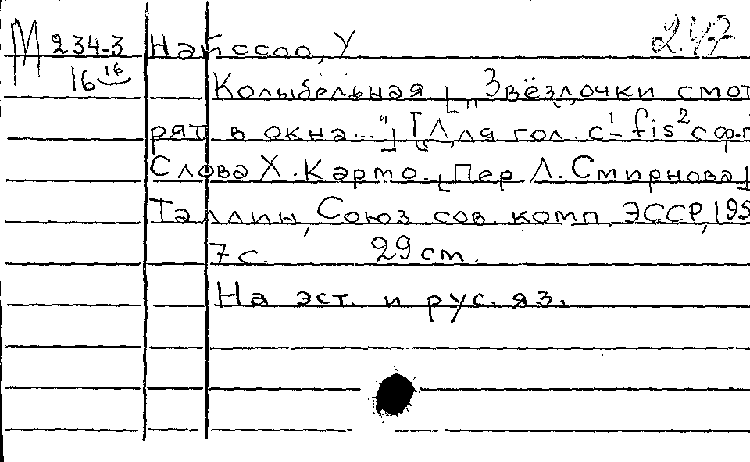 М 234-3 Найссоо, У 2.47
16 16 Колыбельная [„Звёздочки смот
рят в окна..."] [Для гол. c¹-fis² с ф-п
Слова Х. Кармо. [Пер Л. Смирнова]
Таллин, Союз сов. комп. ЭССР, 195
7 с. 29 см.
На эст. и рус. яз.